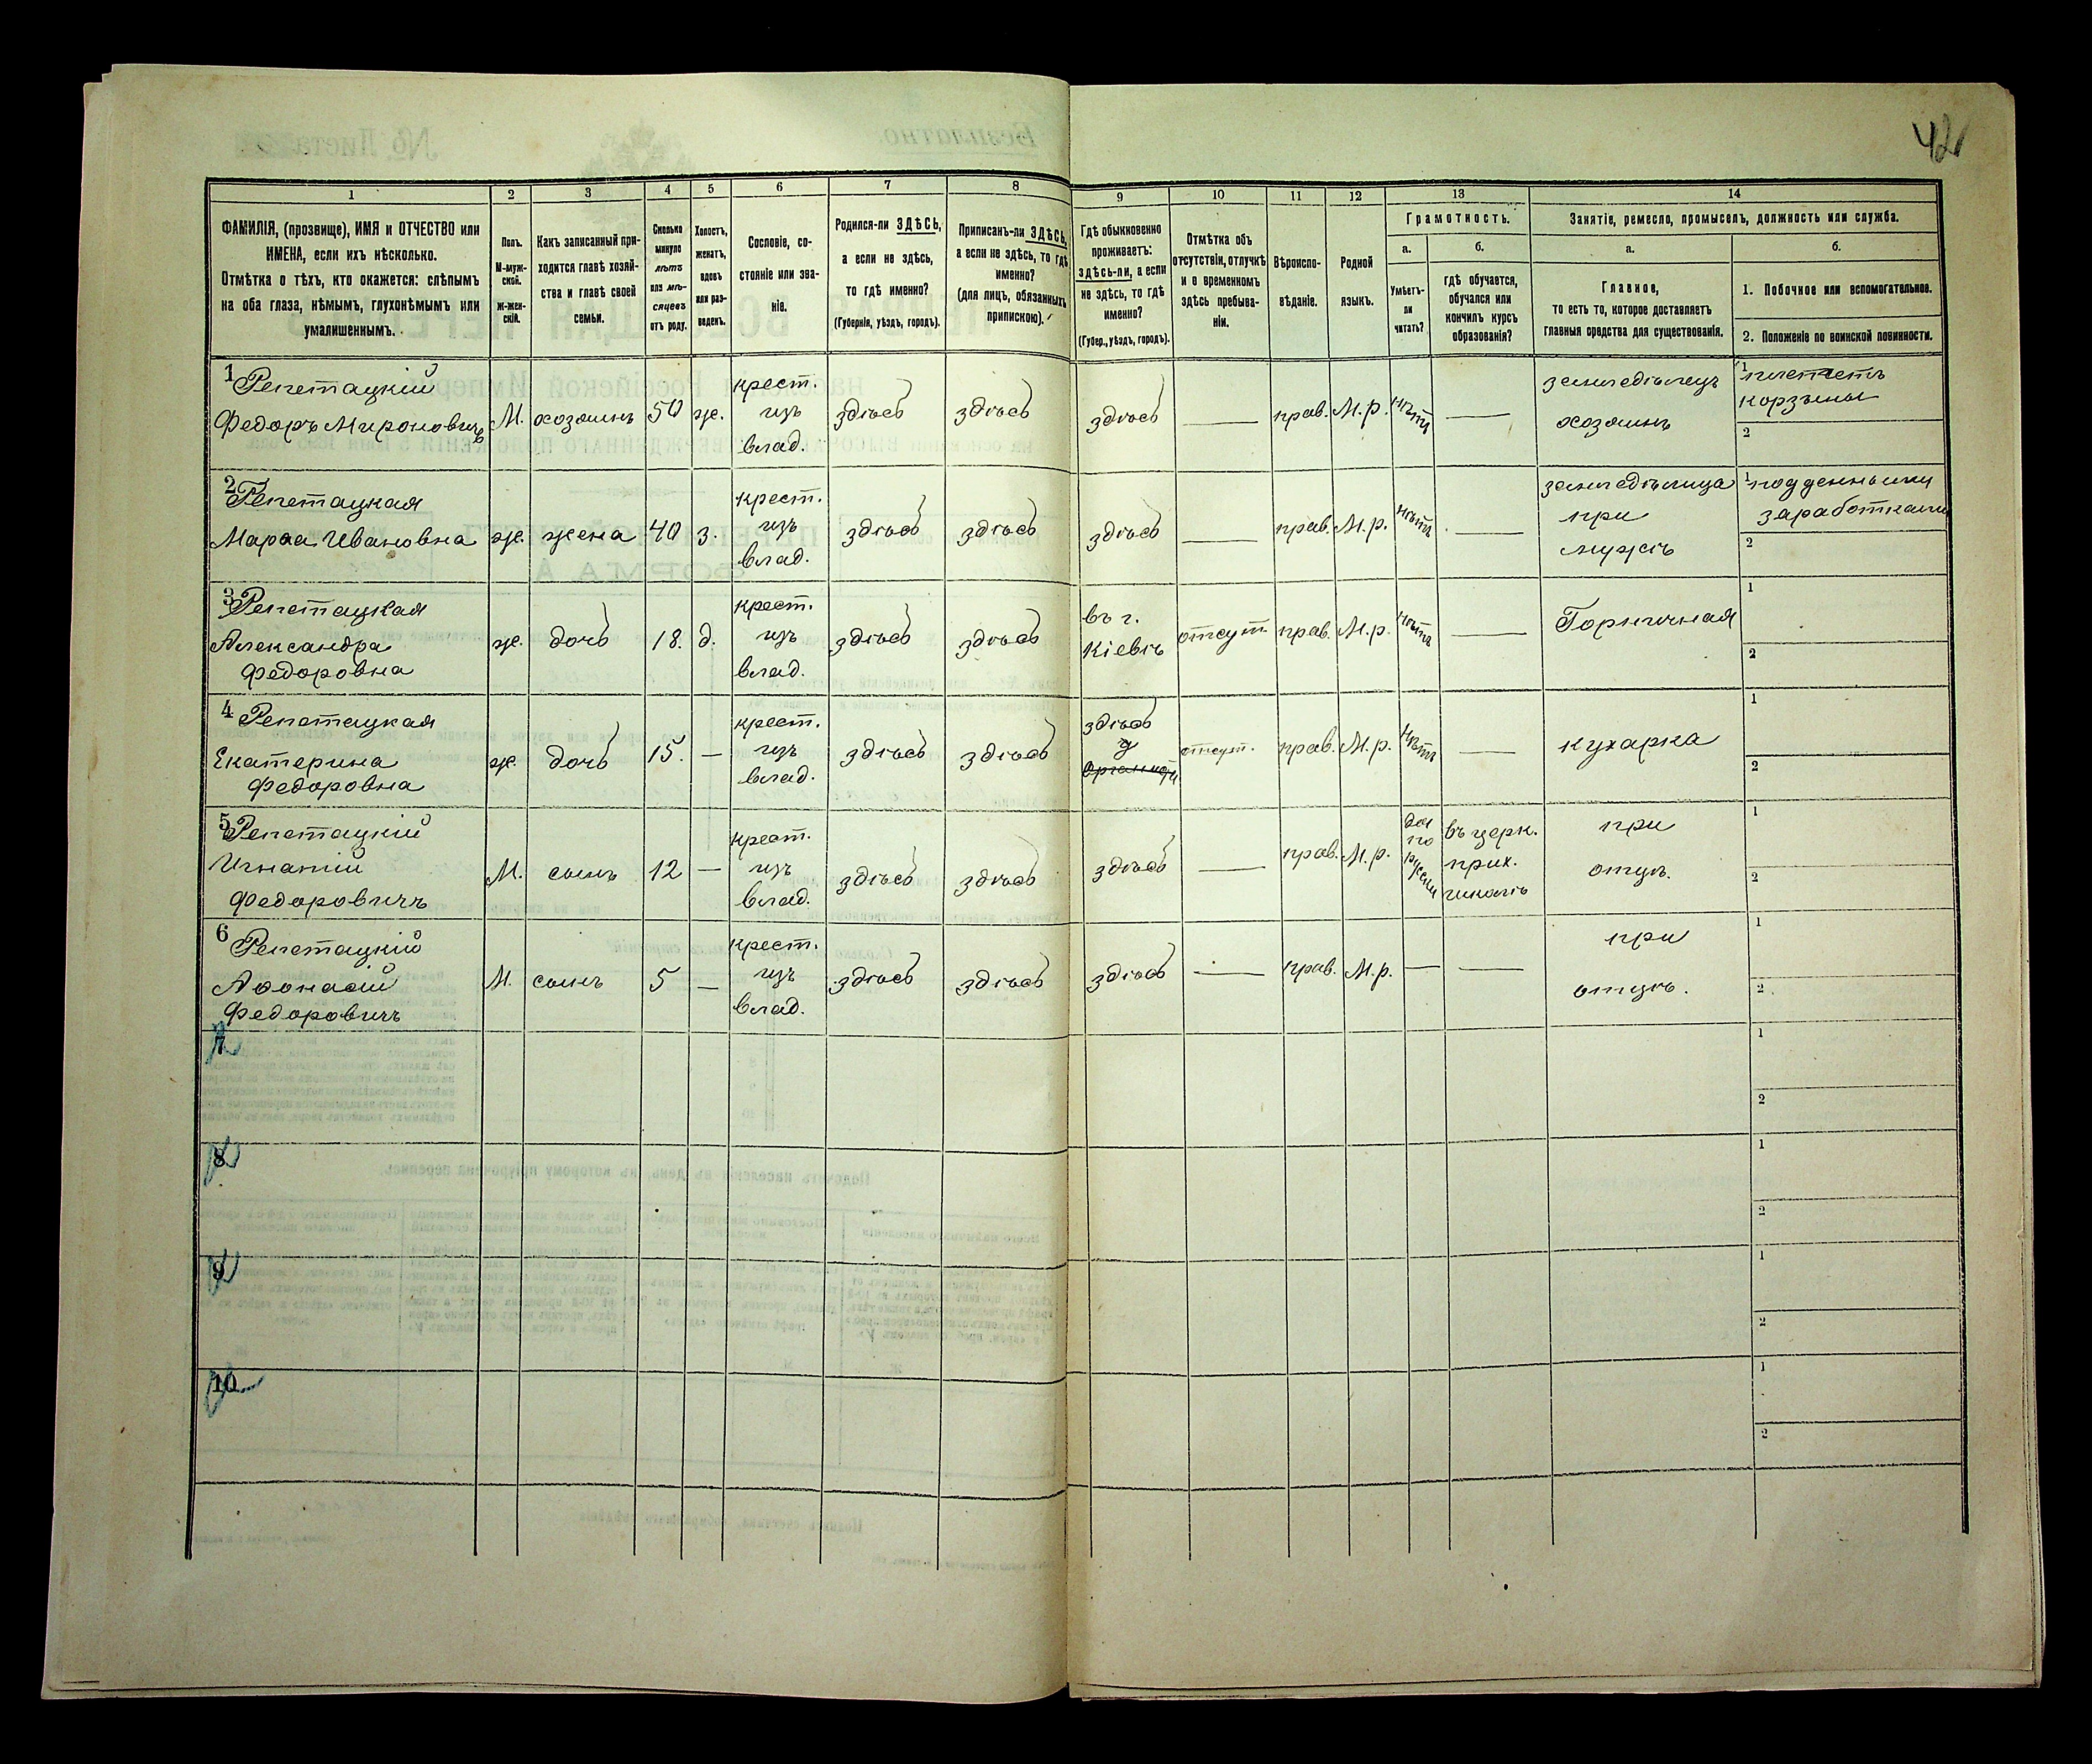 42
1 2 3 4 5 6 7 8 9 10 11 12 13 14
ФАМИЛІЯ, (прозвище), ИМЯ и ОТЧЕСТВО или
ИМЕНА, если ихъ нѣсколько.
Отмѣтка о тѣхъ, кто окажется: слѣпымъ
на оба глаза, нѣмымъ, глухонѣмымъ или
умалишеннымъ.
Полъ.
М-муж-
ской.
Ж-жен-
скій.
Какъ записанный при-
ходится главѣ хозяй-
ства и главѣ своей
семьи.
Сколько
минуло
лѣтъ
или мѣ-
сяцевъ
отъ роду.
Холостъ,
женатъ,
вдовъ
или раз-
веденъ.
Сословіе, со-
стояніе или зва-
ніе.
Родился-ли ЗДѢСЬ,
а если не здѣсь,
то гдѣ именно?
(Губернія, уѣздъ, городъ).
Приписанъ-ли ЗДѢСЬ,
а если не здѣсь, то гдѣ
именно?
(для лицъ, обязанныхъ
припискою).
Гдѣ обыкновенно
проживаетъ:
здѣсь-ли, а если
не здѣсь, то гдѣ
именно?
(Губер., уѣздъ, городъ).
Отмѣтка объ
отсутствіи, отлучкѣ
и о временномъ
здѣсь пребыва-
ніи.
Вѣроиспо-
вѣданіе.
Родной
языкъ.
Грамотность.
а.
Умѣетъ-
ли
читать?
б.
гдѣ обучается,
обучался или
кончилъ курсъ
образованія?
Занятіе, ремесло, промыселъ, должность или служба.
а.
Главное,
то есть то, которое доставляетъ
главныя средства для существованія.
б.
1. Побочное или вспомогательное.
2. Положеніе по воинской повинности.
1 Репетацкій
Федоръ Мироновичъ
М.
хозяинъ
50
ж.
крест.
изъ
влад.
здѣсь
здѣсь
здѣсь
—
прав.
М.р.
нѣтъ
—
земледѣлецъ
хозяинъ
1 плететъ
корзины
2
2 Репетацкая
Марѳа Ивановна
ж.
жена
40
з.
крест.
изъ
влад.
здѣсь
здѣсь
здѣсь
—
прав.
М.р.
нѣтъ
—
земледѣлица
при
мужѣ
1 подденными
заработками
2
3 Репетацкая
Александра
Федоровна
ж.
дочь
18.
д.
крест.
изъ
влад.
здѣсь
здѣсь
въ г.
Кіевѣ
отсут.
прав.
М.р.
нѣтъ
—
Горничная
1
2
4 Репетацкая
Екатерина
Федоровна
ж.
дочь
15.
—
крест.
изъ
влад.
здѣсь
здѣсь
здѣсь
у
отсут.
прав.
М.р.
нѣтъ
—
кухарка
1
2
5 Репетацкій
Игнатій
Федоровичъ
М.
сынъ
12
—
крест.
изъ
влад.
здѣсь
здѣсь
здѣсь
—
прав.
М.р.
да
по
въ церк.
прих.
школѣ
при
отцѣ.
1
2
6 Репетацкій
Аѳонасій
Федоровичъ
М.
сынъ
5
—
крест.
изъ
влад.
здѣсь
здѣсь
здѣсь
—
прав.
М.р.
—
—
при
отцѣ.
1
2
7
1
2
8
1
2
9
1
2
10
1
2